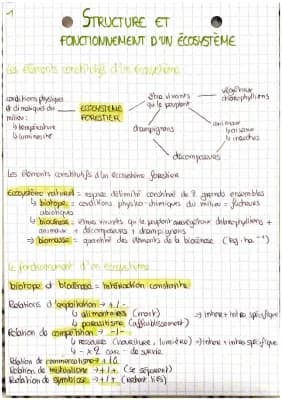 1
STRUCTURE ET
FONCTIONNEMENT D'UN ÉCOSYSTÈME
Les éléments constitutifs d'un écosystème
conditions physiques
et climatiques du
milieu :
↳ température
↳ luminosité
ECOSYSTEME
FORESTIER
êtres vivants
qui le peuplent
végétaux
chlorophylliens
animaux
↳ oiseaux
↳ insectes
champignons
décomposeurs
Les éléments constitutifs d'un écosystème forestier
Ecosystème naturel = espace délimité constitué de 2 grands ensembles
↳ biotope = conditions physico-chimiques du milieu = facteurs
abiotiques
↳ biocénose = êtres vivants qui le peuplent = végétaux chlorophylliens +
animaux + décomposeurs + champignons
=> biomasse = quantité des éléments de la biocénose (kg.ha⁻¹)
Le fonctionnement d'un écosystème
biotope et biocénose = interaction constante
Relations d'exploitation → +/-
↳ alimentaires (mort)
↳ parasitisme (affaiblissement)
=> inter + intra spécifique
Relation de compétition → -/-
↳ ressources (nourriture, lumière) => inter + intra spécifique
↳ de survie
Relation de commensalisme +/0
Relation de mutualisme → +/+ (se séparent)
Relation de symbiose → +/+ (restent liés)